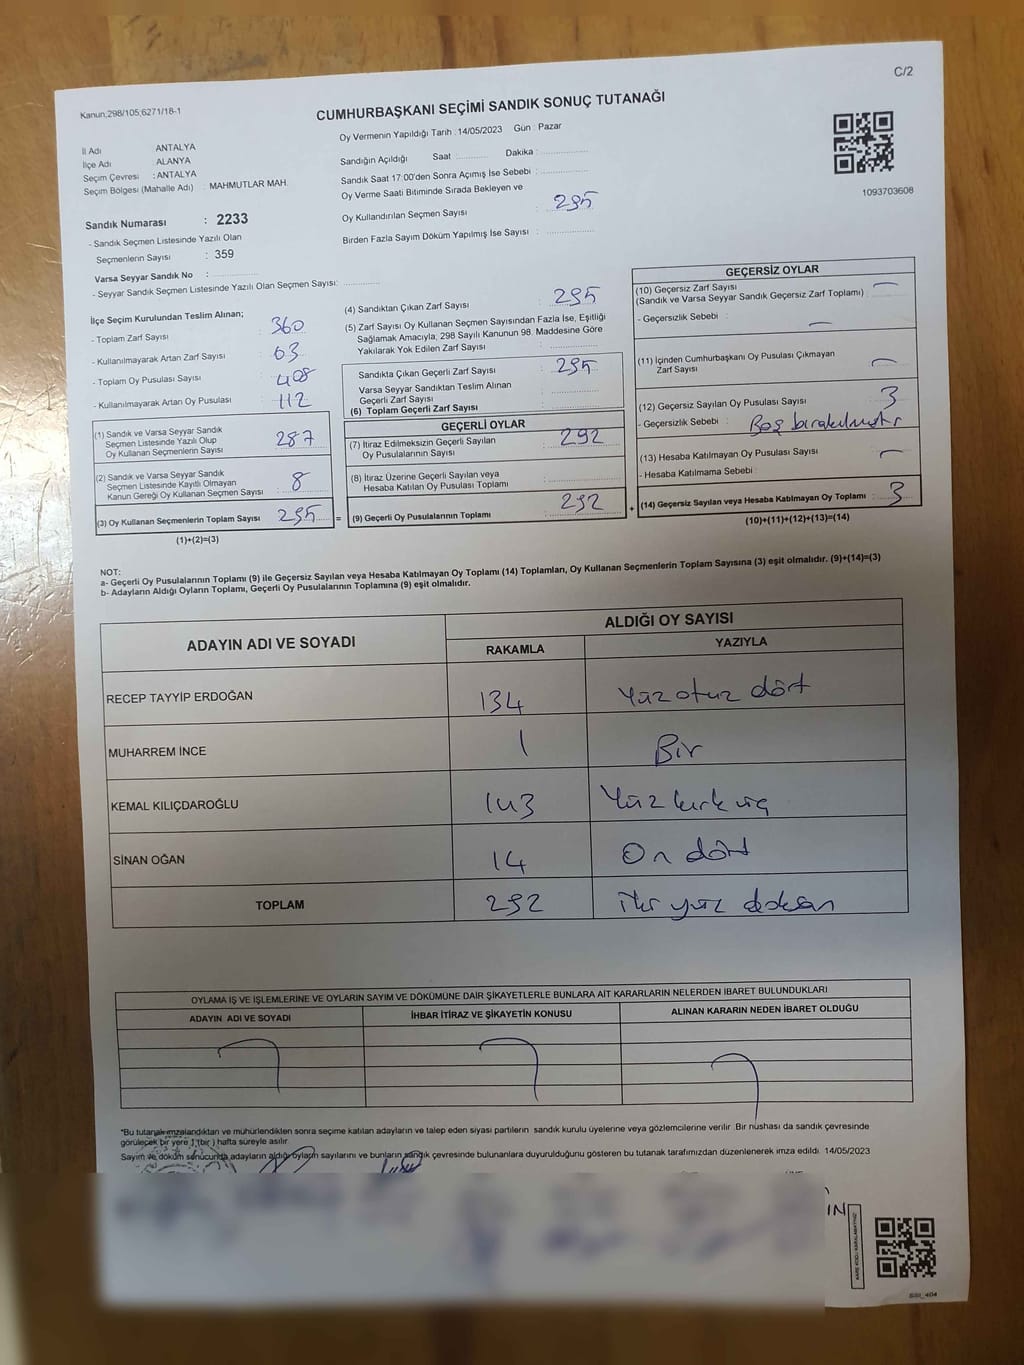 C/2
Kanun,298/105;6271/18-1
CUMHURBAŞKANI SEÇİMİ SANDIK SONUÇ TUTANAĞI
Oy Vermenin Yapıldığı Tarih : 14/05/2023 Gün : Pazar
İl Adı : ANTALYA
İlçe Adı : ALANYA
Seçim Çevresi : ANTALYA
Seçim Bölgesi (Mahalle Adı) : MAHMUTLAR MAH.
Sandık Numarası : 2233
- Sandık Seçmen Listesinde Yazılı Olan
Seçmenlerin Sayısı : 359
Varsa Seyyar Sandık No :
- Seyyar Sandık Seçmen Listesinde Yazılı Olan Seçmen Sayısı:
Sandığın Açıldığı Saat : Dakika :
Sandık Saat 17:00'den Sonra Açımış İse Sebebi :
Oy Verme Saati Bitiminde Sırada Bekleyen ve
Oy Kullandırılan Seçmen Sayısı : 295
Birden Fazla Sayım Döküm Yapılmış İse Sayısı :
1093703608
İlçe Seçim Kurulundan Teslim Alınan;
- Toplam Zarf Sayısı : 360
- Kullanılmayarak Artan Zarf Sayısı : 63
- Toplam Oy Pusulası Sayısı : 408
- Kullanılmayarak Artan Oy Pusulası : 112
(1) Sandık ve Varsa Seyyar Sandık
Seçmen Listesinde Yazılı Olup
Oy Kullanan Seçmenlerin Sayısı : 287
(2) Sandık ve Varsa Seyyar Sandık
Seçmen Listesinde Kayıtlı Olmayan
Kanun Gereği Oy Kullanan Seçmen Sayısı : 8
(3) Oy Kullanan Seçmenlerin Toplam Sayısı : 295 =
(1)+(2)=(3)
(4) Sandıktan Çıkan Zarf Sayısı : 295
(5) Zarf Sayısı Oy Kullanan Seçmen Sayısından Fazla İse, Eşitliği
Sağlamak Amacıyla; 298 Sayılı Kanunun 98. Maddesine Göre
Yakılarak Yok Edilen Zarf Sayısı :
Sandıkta Çıkan Geçerli Zarf Sayısı : 295
Varsa Seyyar Sandıktan Teslim Alınan
Geçerli Zarf Sayısı :
(6) Toplam Geçerli Zarf Sayısı :
GEÇERLİ OYLAR
(7) İtiraz Edilmeksizin Geçerli Sayılan
Oy Pusulasının Sayısı : 292
(8) İtiraz Üzerine Geçerli Sayılan veya
Hesaba Katılan Oy Pusulası Toplamı :
(9) Geçerli Oy Pusulalarının Toplamı : 292 +
GEÇERSİZ OYLAR
(10) Geçersiz Zarf Sayısı
(Sandık ve Varsa Seyyar Sandık Geçersiz Zarf Toplamı) :
- Geçersizlik Sebebi :
(11) İçinden Cumhurbaşkanı Oy Pusulası Çıkmayan
Zarf Sayısı :
(12) Geçersiz Sayılan Oy Pusulası Sayısı : 3
- Geçersizlik Sebebi : Boş bırakılmıştır
(13) Hesaba Katılmayan Oy Pusulası Sayısı :
- Hesaba Katılmama Sebebi :
(14) Geçersiz Sayılan veya Hesaba Katılmayan Oy Toplamı : 3
(10)+(11)+(12)+(13)=(14)
NOT:
a- Geçerli Oy Pusulalarının Toplamı (9) ile Geçersiz Sayılan veya Hesaba Katılmayan Oy Toplamı (14) Toplamları, Oy Kullanan Seçmenlerin Toplam Sayısına (3) eşit olmalıdır. (9)+(14)=(3)
b- Adayların Aldığı Oyların Toplamı, Geçerli Oy Pusulalarının Toplamına (9) eşit olmalıdır.
ADAYIN ADI VE SOYADI
ALDIĞI OY SAYISI
RAKAMLA YAZIYLA
RECEP TAYYİP ERDOĞAN 134 Yüz otuz dört
MUHARREM İNCE 1 Bir
KEMAL KILIÇDAROĞLU 143 Yüz kırk üç
SİNAN OĞAN 14 On dört
TOPLAM 292 iki yüz doksan
OYLAMA İŞ VE İŞLEMLERİNE VE OYLARIN SAYIM VE DÖKÜMÜNE DAİR ŞİKAYETLERLE BUNLARA AİT KARARLARIN NELERDEN İBARET BULUNDUKLARI
ADAYIN ADI VE SOYADI İHBAR İTİRAZ VE ŞİKAYETİN KONUSU ALINAN KARARIN NEDEN İBARET OLDUĞU
*Bu tutanak imzalandıktan ve mühürlendikten sonra seçime katılan adayların ve talep eden siyasi partilerin sandık kurulu üyelerine veya gözlemcilerine verilir. Bir nüshası da sandık çevresinde
görülecek bir yere 1 (bir) hafta süreyle asılır.
Sayım ve döküm sonucunda adayların aldığı oyların sayılarını ve bunların sandık çevresinde bulunanlara duyurulduğunu gösteren bu tutanak tarafımızdan düzenlenerek imza edildi. 14/05/2023
SSI_404